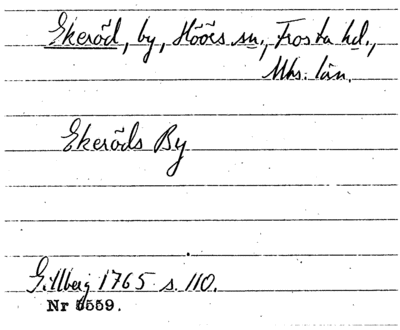 Ekeröd, by, Höörs sn., Frosta hd.,
Mhs. län.
Ekeröds By
Gillberg 1765 s. 110.
Nr 5559.